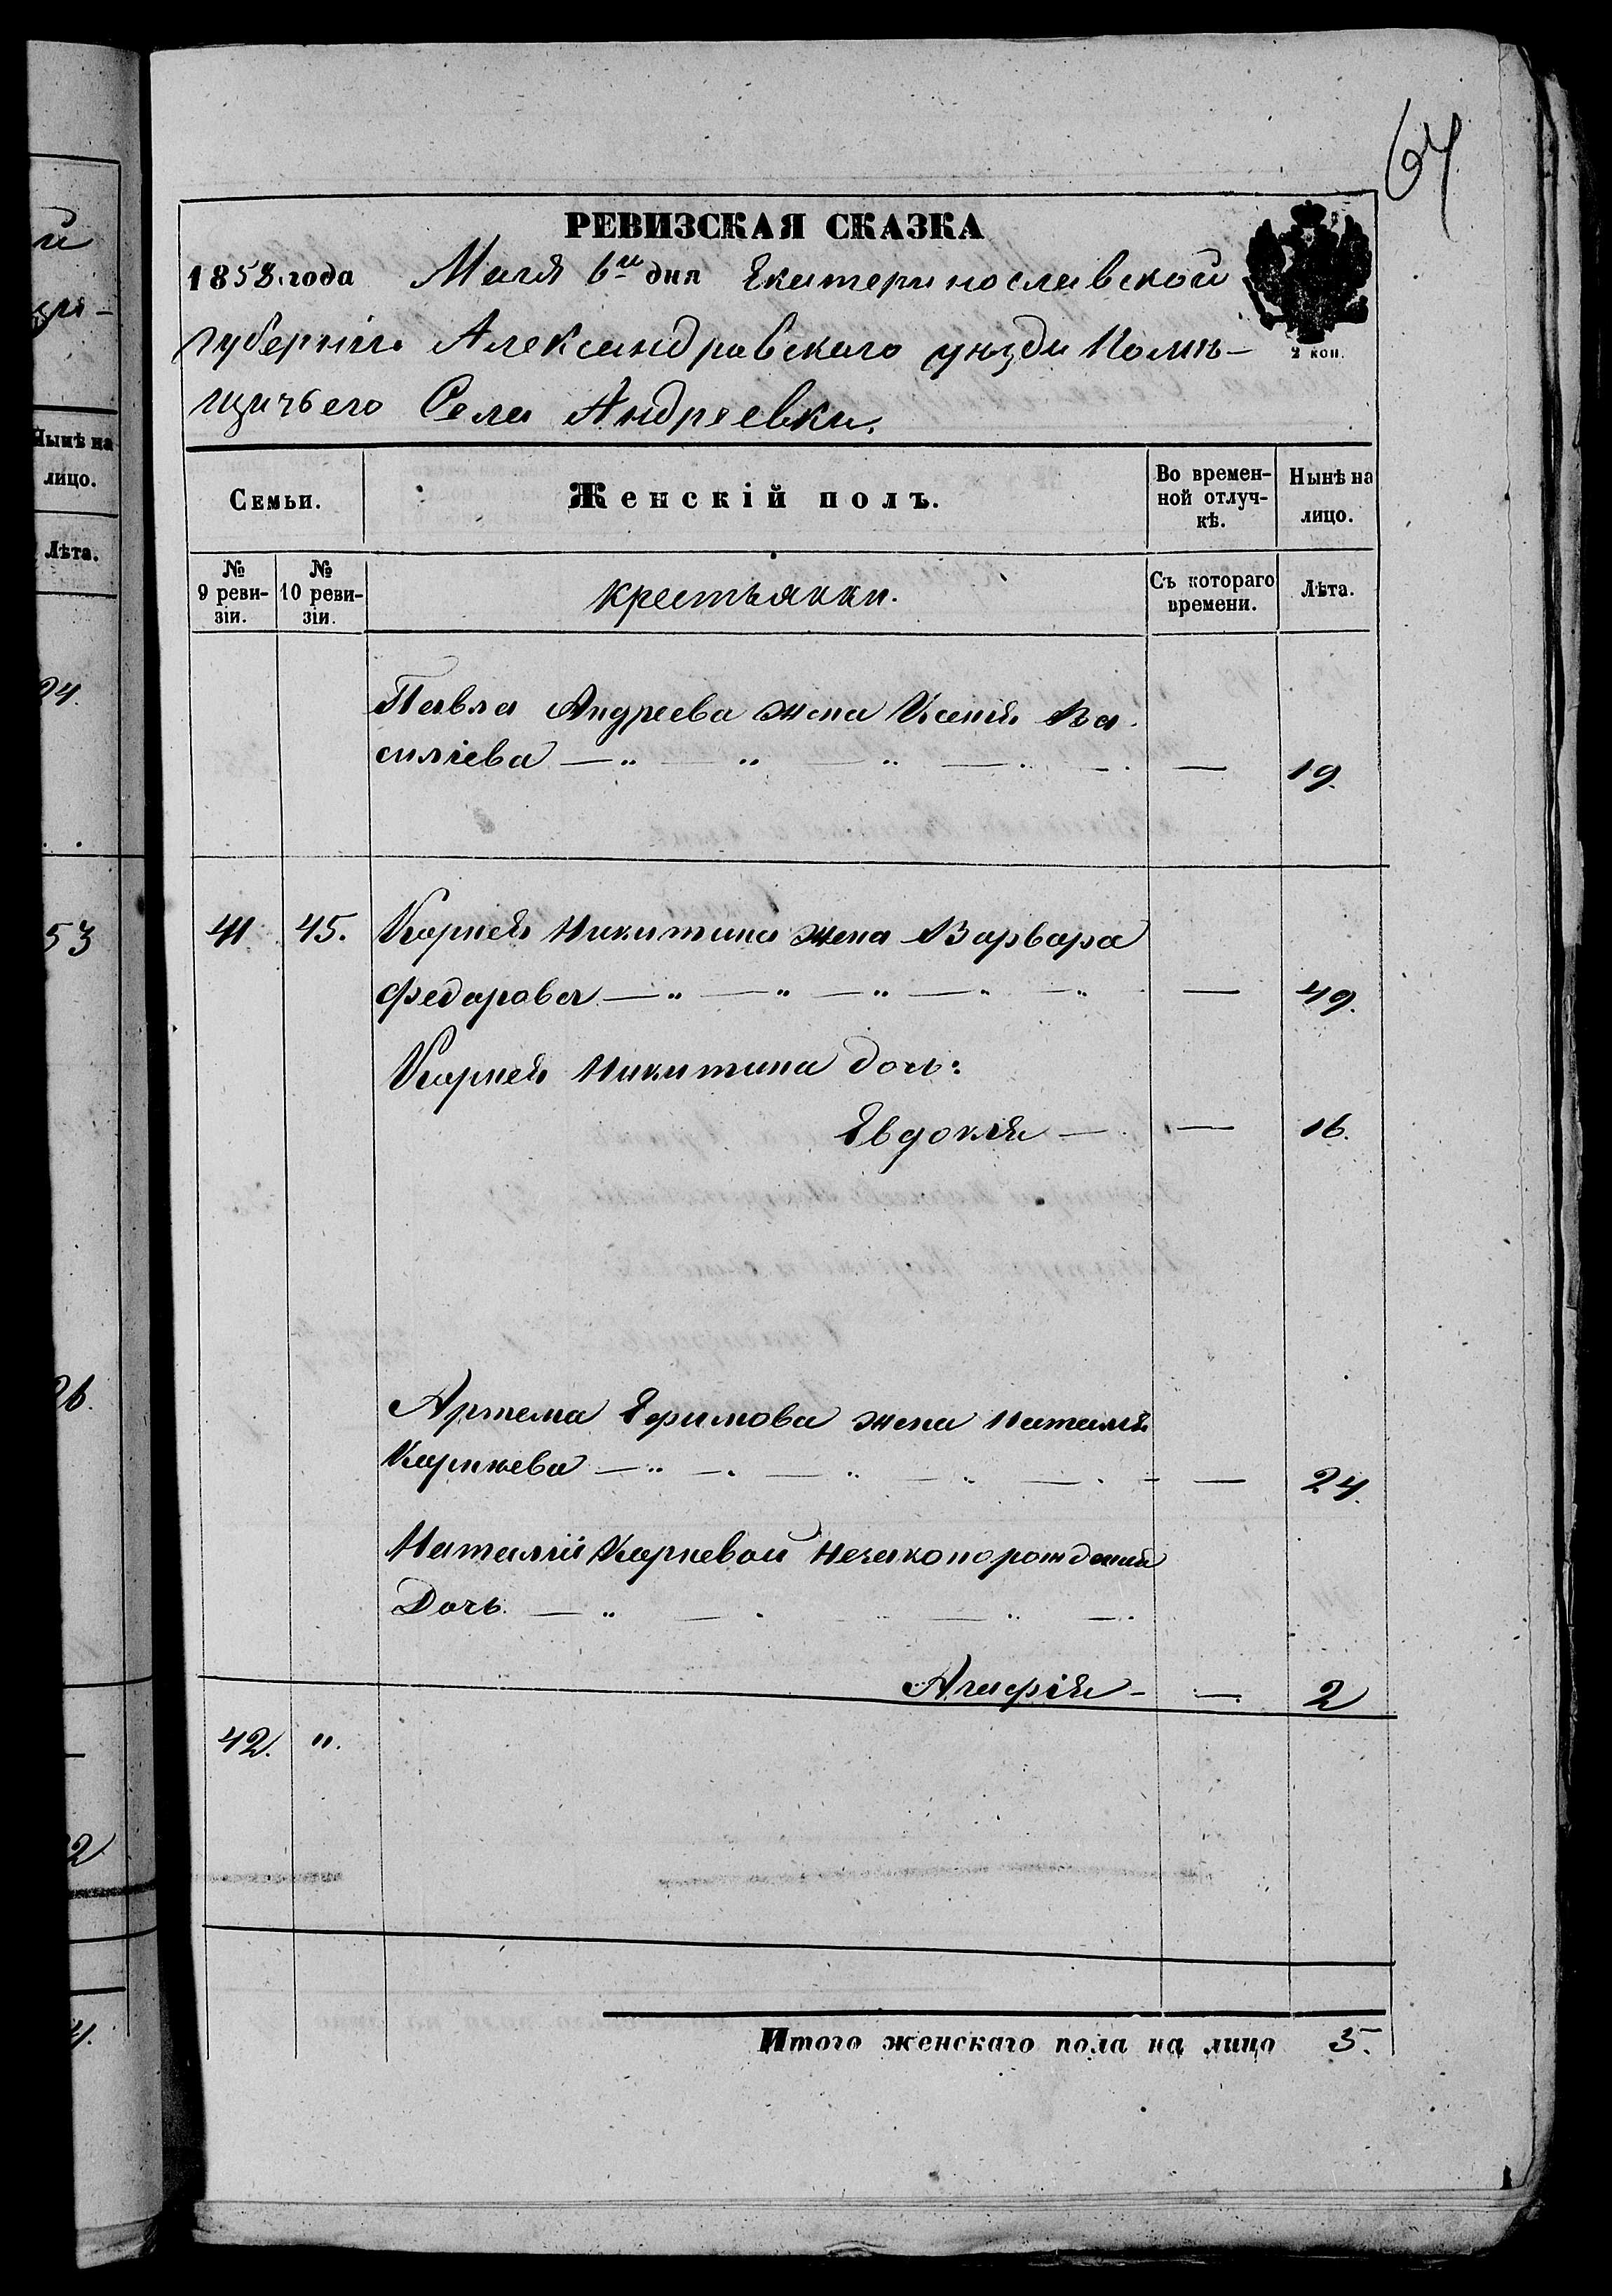 64
РЕВИЗСКАЯ СКАЗКА
1858 года Маія 6го дня Екатеринославской
губерніи Александровскаго уѣзда Помѣ-
щичьего Села Андреевки.
2 коп.
Семьи. Женскій полъ. Во времен-
ной отлуч-
кѣ. Нынѣ на
лицо.
№
9 реви-
зіи. №
10 реви-
зіи. крестьянки. Съ котораго
времени. Лѣта.
Павла Андреева жена Ксенія Ва-
силіева — 19.
41. 45. Корнея Никитина жена Варвара
Федорова — 49.
Корнея Никитина дочь:
Евдокія — 16.
Артема Ефимова жена Наталія
Карнѣева — 24.
Наталіи Карневой незаконорожденая
Дочь.
Агафія — 2
42. ".
Итого женскаго пола на лицо 5.
Нынѣ на
лицо.
Лѣта.
53